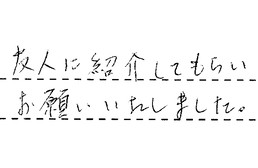 友人に紹介してもらい
お願いいたしました。